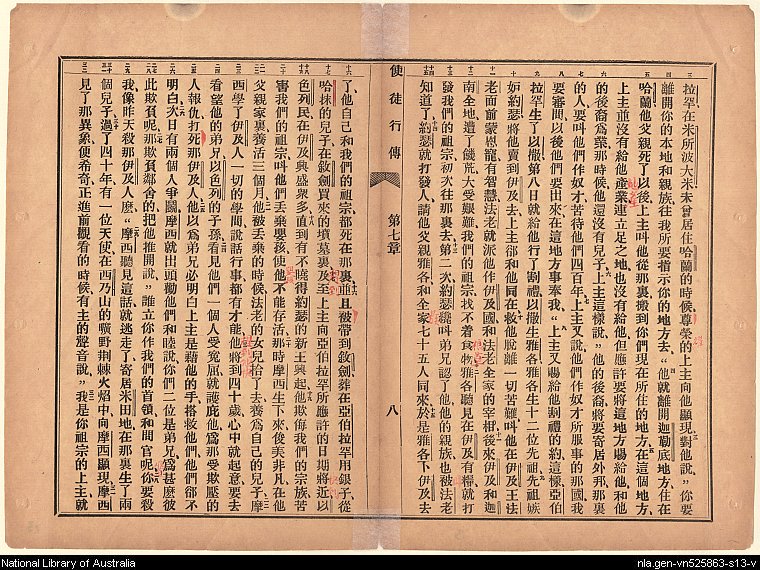 三 四 五 六 七 八 九 十 十一 十二 十三 十四 十五
拉罕在米所波大米未曾居住哈蘭的時候、尊榮的上主向他顯現、對他說、“你要
離開你的本地和親族、往我所要指示你的地方去”他就離開迦勒底地方、住在
哈蘭、他父親死了以後、上主叫他從那裏搬到你們現在所住的地方、在這個地方、
上主並沒有給他產業、連立足之地也沒有給他、但應許要將這地方賜給他和他
的後裔爲業、那時候他還沒有兒子、上主這樣說、“他的後裔將要寄居外邦、那裏
的人要叫他們作奴才、苦待他們四百年、上主又說、他們作奴才所服事的那國、我
要審問、以後他們要出來、在這地方事奉我、”上主又賜給他割禮的約、這樣亞伯
拉罕生了以撒、第八日就給他行了割禮、以撒生雅各、雅各生十二位先祖、先祖嫉
妒約瑟、將他賣到伊及去、上主卻和他同在、救他脫離一切苦難、叫他在伊及王法
老面前蒙恩寵、有智慧、法老就派他作伊及國和法老全家的宰相、後來伊及和迦
南全地遭了饑荒、大受艱難、我們的祖宗找不着食物、雅各聽見在伊及有糧、就打
發我們的祖宗初次往那裏去、第二次約瑟纔叫弟兄認了他、他的親族也被法老
知道了、約瑟就打發人、請他父親雅各和全家七十五人同來、於是雅各下伊及去
使徒行傳 第七章 八
了、他自己和我們的祖宗都死在那裏、並且被帶到敘劍、葬在亞伯拉罕用銀子從
哈抹的兒子在敘劍買來的墳墓裏、及至上主向亞伯拉罕所應許的日期將近、以
色列民在伊及興盛衆多、直到有不曉得約瑟的新王興起、他欺侮我們的宗族、苦
害我們的祖宗、叫他們丟棄嬰孩、使他不能存活、那時摩西生下來、俊美非凡、在他
父親家裏養活三個月、他被丟棄的時候、法老的女兒拾了去、養爲自己的兒子、摩
西學了伊及人一切的學問、說話行事都有才能、他將到四十歲、心中就起意要去
看望他的弟兄以色列的子孫、看見他們一個人受寃屈、就護庇他、爲那受欺壓的
人報仇、打死那伊及人、他以爲弟兄必明白上主是藉他的手搭救他們、他們卻不
明白、次日有兩個人爭鬬、摩西就出頭、勸他們和睦、說、你們二位是弟兄、爲甚麽彼
此欺負呢、那欺負鄰舍的把他推開說、“誰立你作我們的首領和問官呢、你要殺
我像昨天殺那伊及人麼、”摩西聽見這話就逃走了、寄居米田地、在那裏生了兩
個兒子、過了四十年、有一位天使在西乃山的曠野、荆棘火焰中向摩西顯現、摩西
見了那異象、便希奇、正進前觀看的時候、有主的聲音說、“我是你祖宗的上主、就
National Library of Australia
nla.gen-vn525863-s13-v